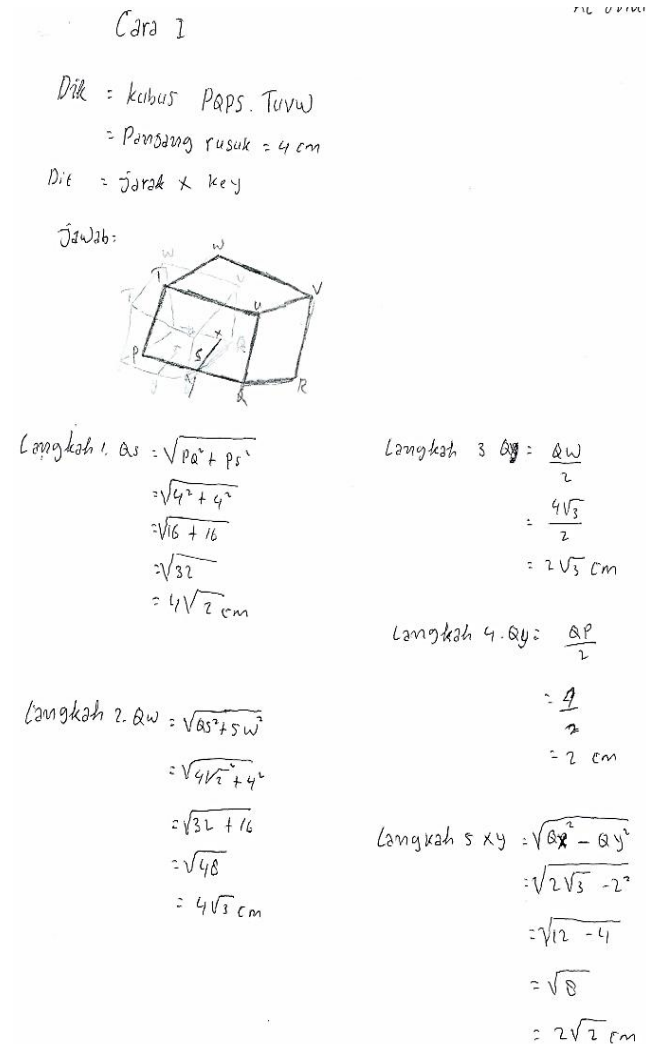 Cara I
Dik = kubus PQPS. TUVW
= Pansang rusuk = 4 cm
Dit = jarak x key
jawab:
W
T
U
V
P
S
X
Q
R
Langkah 1. QS = √PQ² + PS²
= √4² + 4²
= √16 + 16
= √32
= 4√2 cm
Langkah 2. QW = √QS² + SW²
= √4√2² + 4²
= √32 + 16
= √48
= 4√3 cm
Langkah 3 Qy = QW/2
= 4√3/2
= 2√3 cm
Langkah 4. Qy = QP/2
= 4/2
= 2 cm
Langkah 5 xy = √Qx² - Qy²
= √2√3 - 2²
= √12 - 4
= √8
= 2√2 cm